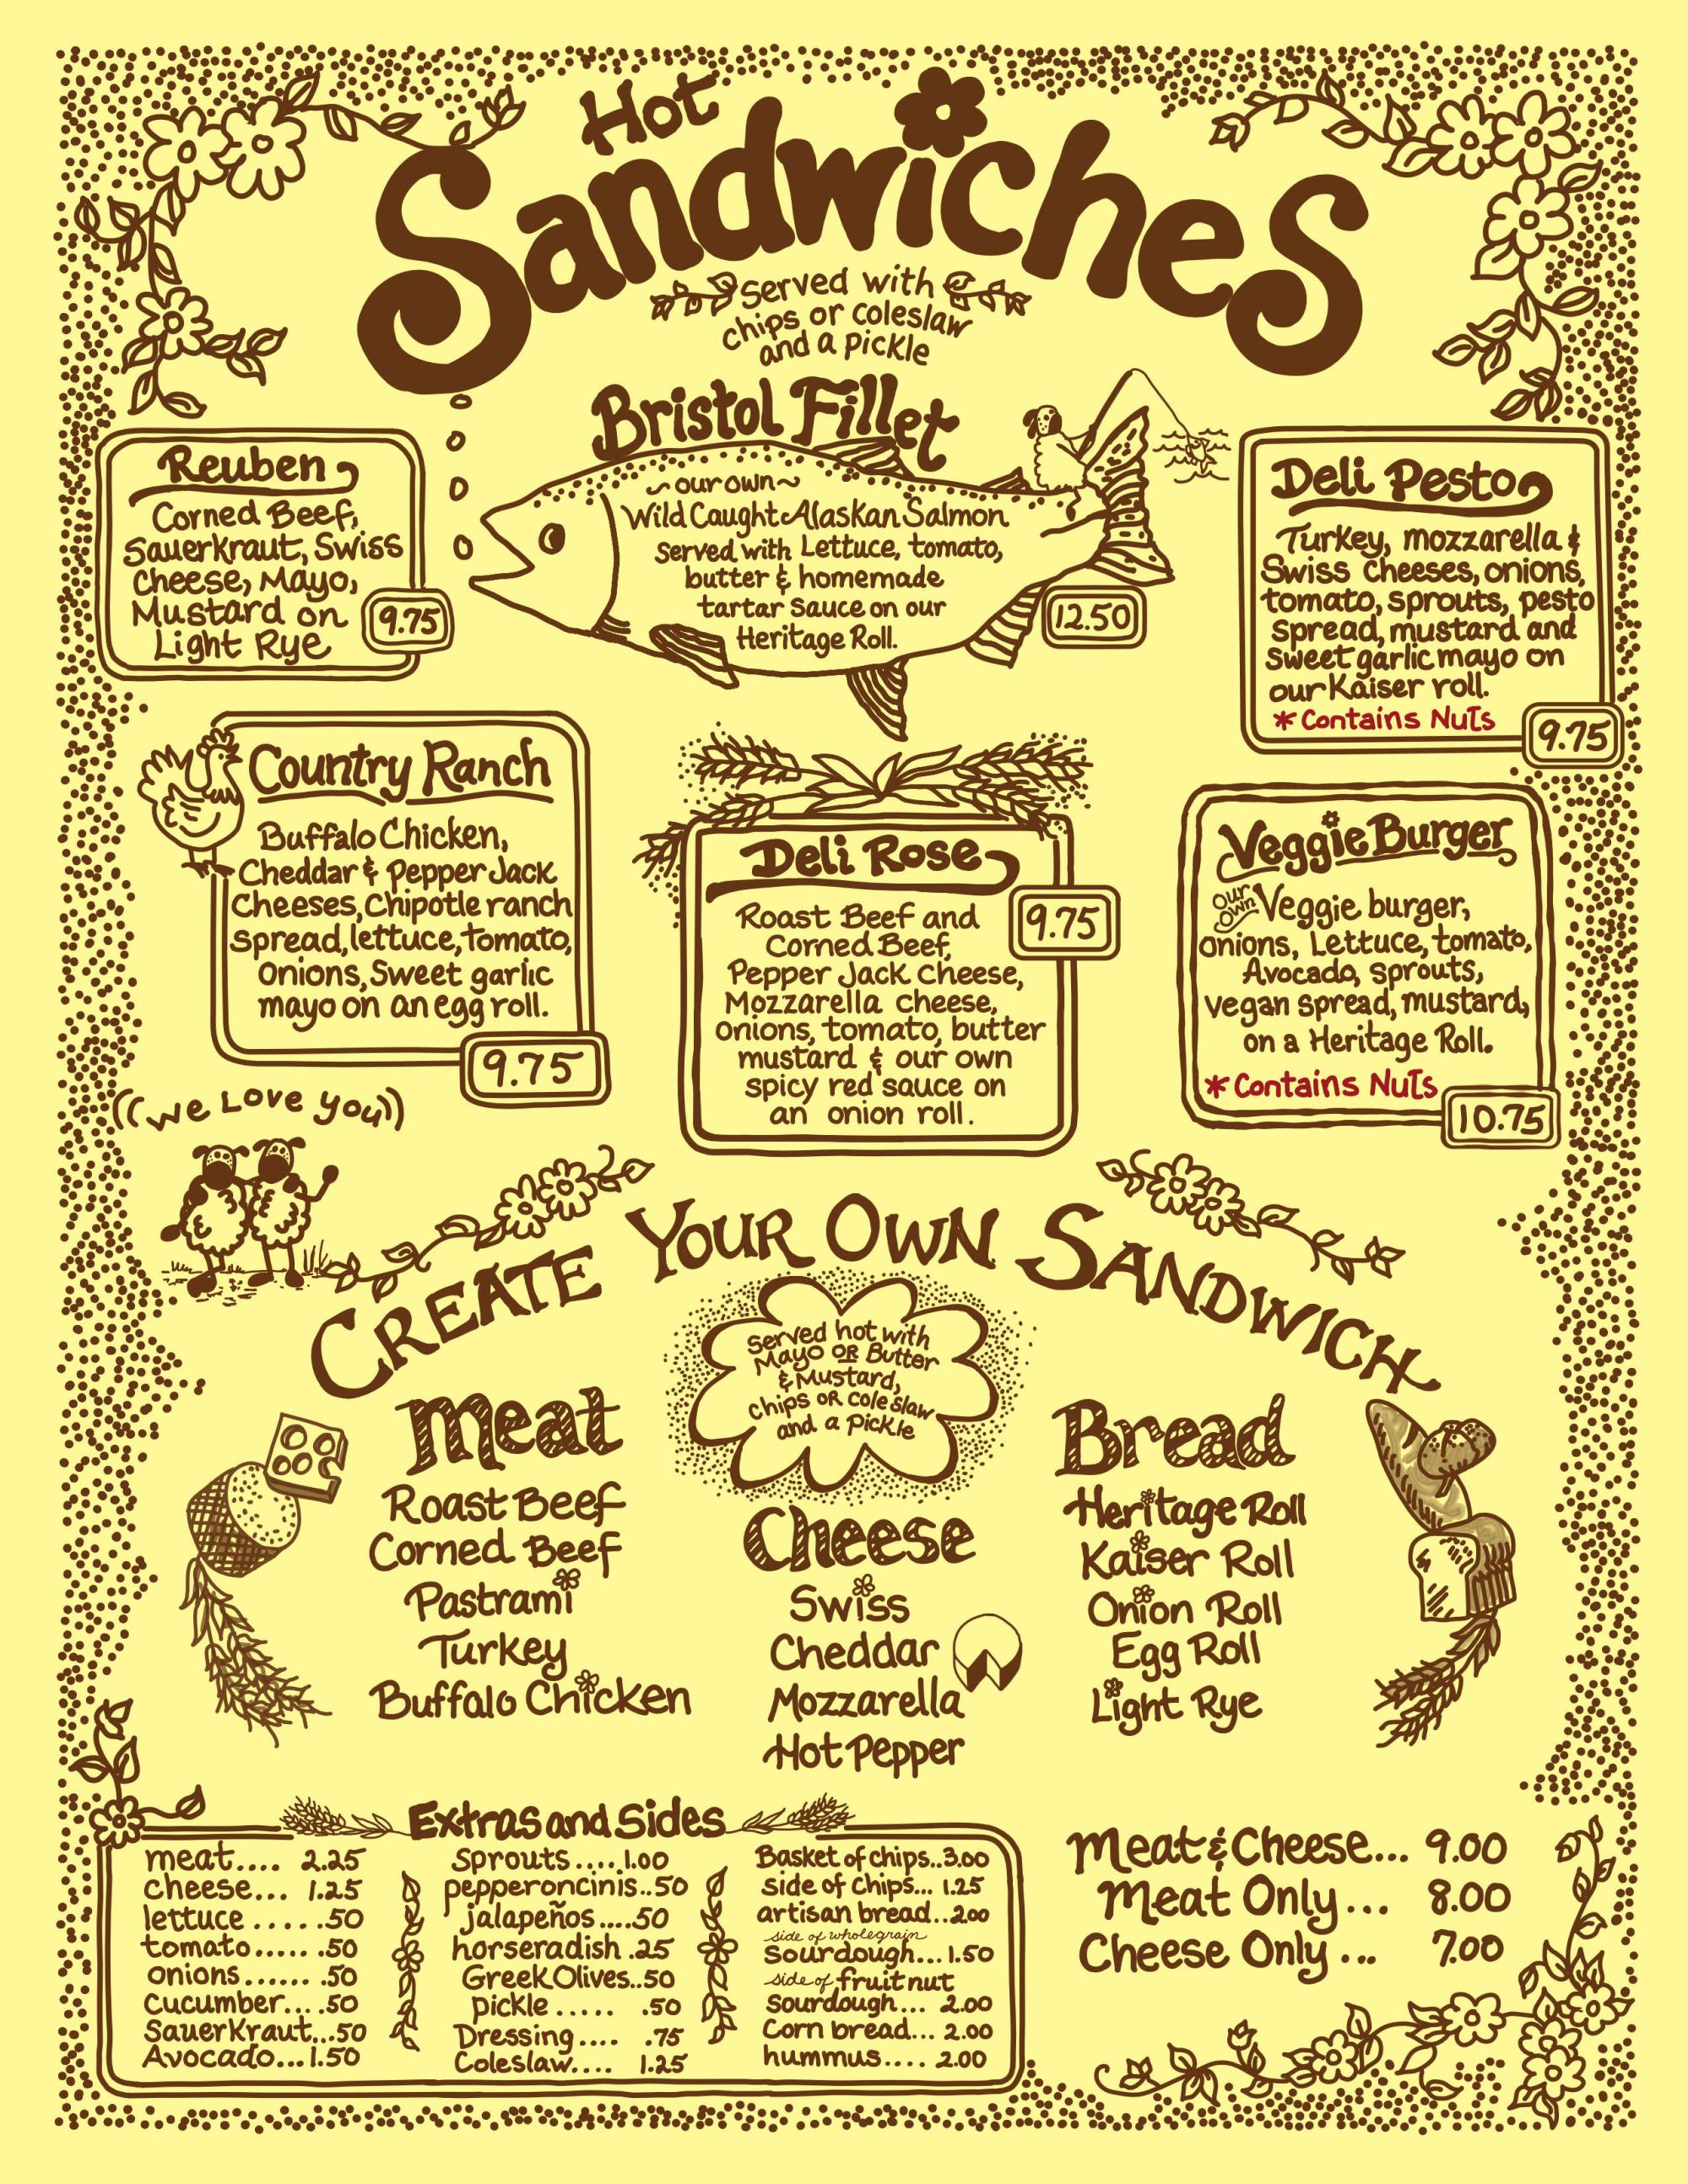 Hot
Sandwiches
Served with
chips or coleslaw
and a pickle
Bristol Fillet
~ our own ~
Wild Caught Alaskan Salmon
Served with Lettuce, tomato,
butter & homemade
tartar sauce on our
Heritage Roll.
12.50
Reuben
Corned Beef,
Sauerkraut, Swiss
Cheese, Mayo,
Mustard on
Light Rye
9.75
Deli Pesto
Turkey, mozzarella &
Swiss Cheeses, onions,
tomato, sprouts, pesto
spread, mustard and
sweet garlic mayo on
our Kaiser roll.
* Contains Nuts
9.75
Country Ranch
Buffalo Chicken,
Cheddar & Pepper Jack
Cheeses, Chipotle ranch
spread, lettuce, tomato,
Onions, Sweet garlic
mayo on an egg roll.
9.75
Deli Rose
Roast Beef and
Corned Beef,
Pepper Jack cheese,
Mozzarella cheese,
onions, tomato, butter
mustard & our own
spicy red sauce on
an onion roll.
9.75
Veggie Burger
our own Veggie burger,
onions, Lettuce, tomato,
Avocado, sprouts,
vegan spread, mustard,
on a Heritage Roll.
* Contains Nuts
10.75
((We Love you))
CREATE YOUR OWN SANDWICH
served hot with
Mayo OR Butter
& Mustard,
chips OR cole slaw
and a pickle
Meat
Roast Beef
Corned Beef
Pastrami
Turkey
Buffalo Chicken
Cheese
Swiss
Cheddar
Mozzarella
Hot Pepper
Bread
Heritage Roll
Kaiser Roll
Onion Roll
Egg Roll
Light Rye
Extras and Sides
meat.... 2.25
cheese... 1.25
lettuce ..... .50
tomato...... .50
onions...... .50
cucumber... .50
Sauerkraut...50
Avocado... 1.50
Sprouts.... 1.00
pepperoncinis...50
jalapeños.....50
horseradish .25
Greek Olives..50
pickle ..... .50
Dressing.... .75
Coleslaw.... 1.25
Basket of chips..3.00
side of chips... 1.25
artisan bread..2.00
side of wholegrain
sourdough... 1.50
side of fruit nut
sourdough... 2.00
Corn bread... 2.00
hummus.... 2.00
Meat & Cheese... 9.00
Meat Only... 8.00
Cheese Only... 7.00